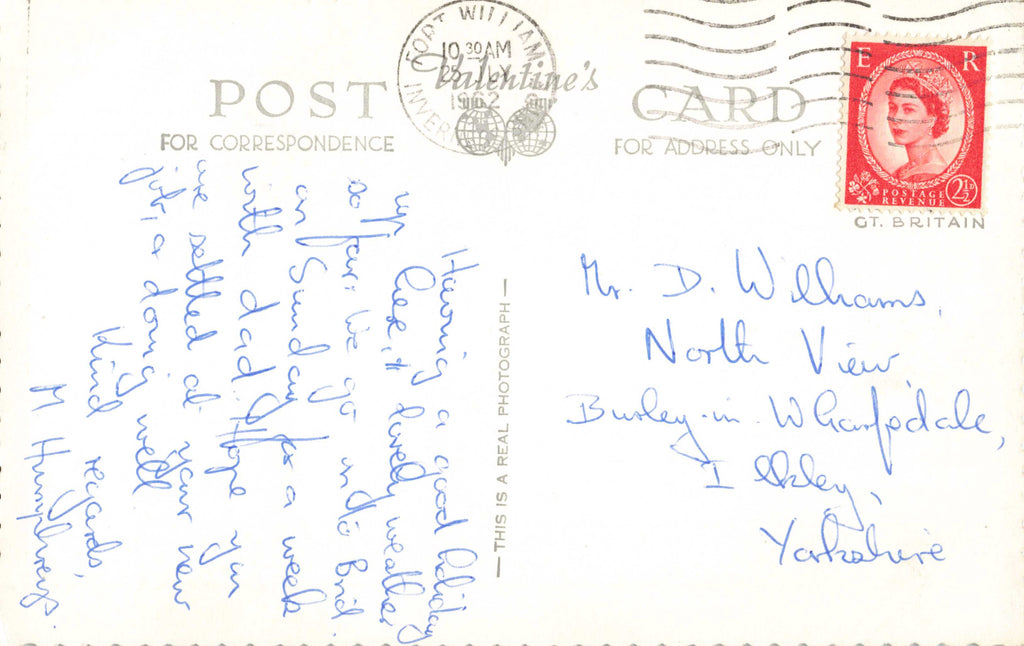 POST
Valentine's
CARD
FOR CORRESPONDENCE
FOR ADDRESS ONLY
FORT WILLIAM
10 30 AM
1962
E R
POSTAGE
REVENUE
2½D
GT. BRITAIN
Having a good holiday
up here, & lovely weather
so far. We go into Brid.
on Sunday for a week
with dad. Hope you
are settled at your new
job, & doing well
Kind regards,
M Humphreys.
— THIS IS A REAL PHOTOGRAPH —
Mr. D. Williams,
North View
Burley-in-Wharfedale,
Ilkley,
Yorkshire